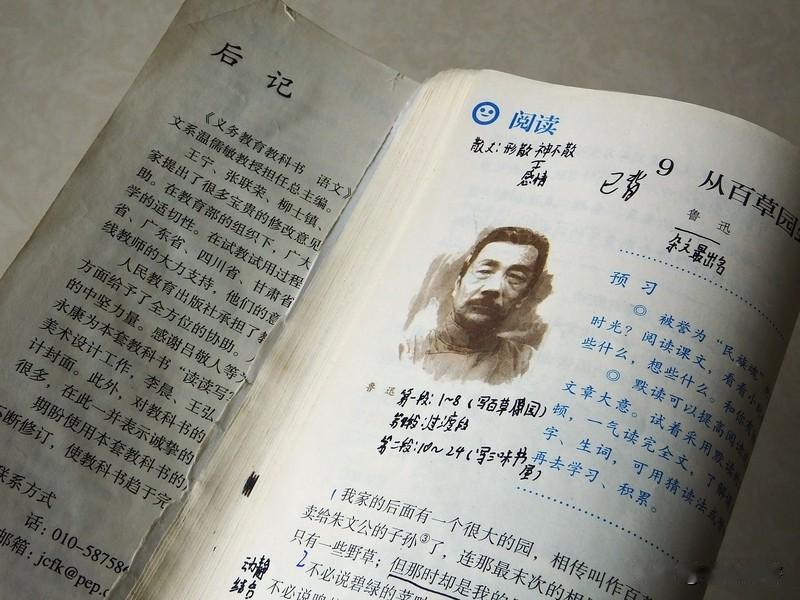 后 记
《义务教育教科书 语文》
文系温儒敏教授担任总主编。
王宁、张联荣、柳士镇、
家提出了很多宝贵的修改意见
助。在教育部的组织下，广大
学的适切性。在试教试用过程
省、广东省、四川省、甘肃省
线教师的大力支持，他们的意
人民教育出版社承担了教
方面给予了全方位的协助。人
的中坚力量。感谢吕敬人等为
永康为本套教科书“读读写
美术设计工作，李晨、王弘
计封面。此外，对教科书的
很多，在此一并表示诚挚的
期盼使用本套教科书的
不断修订，使教科书趋于完
联系方式
话：010-58758
邮箱：jcfk@pep.c
阅读
散文：形散神不散
感情
已背
9 从百草园
鲁 迅
杂文最出名
预 习
◎ 被誉为“民族魂”
时光？阅读课文，看看小
些什么，想些什么。和你有
◎ 默读可以提高阅读
文章大意。试着采用默读
顿，一气读完全文，了解
字、生词，可用猜读法
再去学习、积累。
鲁 迅
第一段：1~8（写百草园）
过渡段
第二段：10~24（写三味书屋）
1 我家的后面有一个很大的园，相传叫作百草
卖给朱文公的子孙③了，连那最末次的相
只有一些野草；但那时却是我的
2 不必说碧绿的菜
动静
结合
不必说鸣